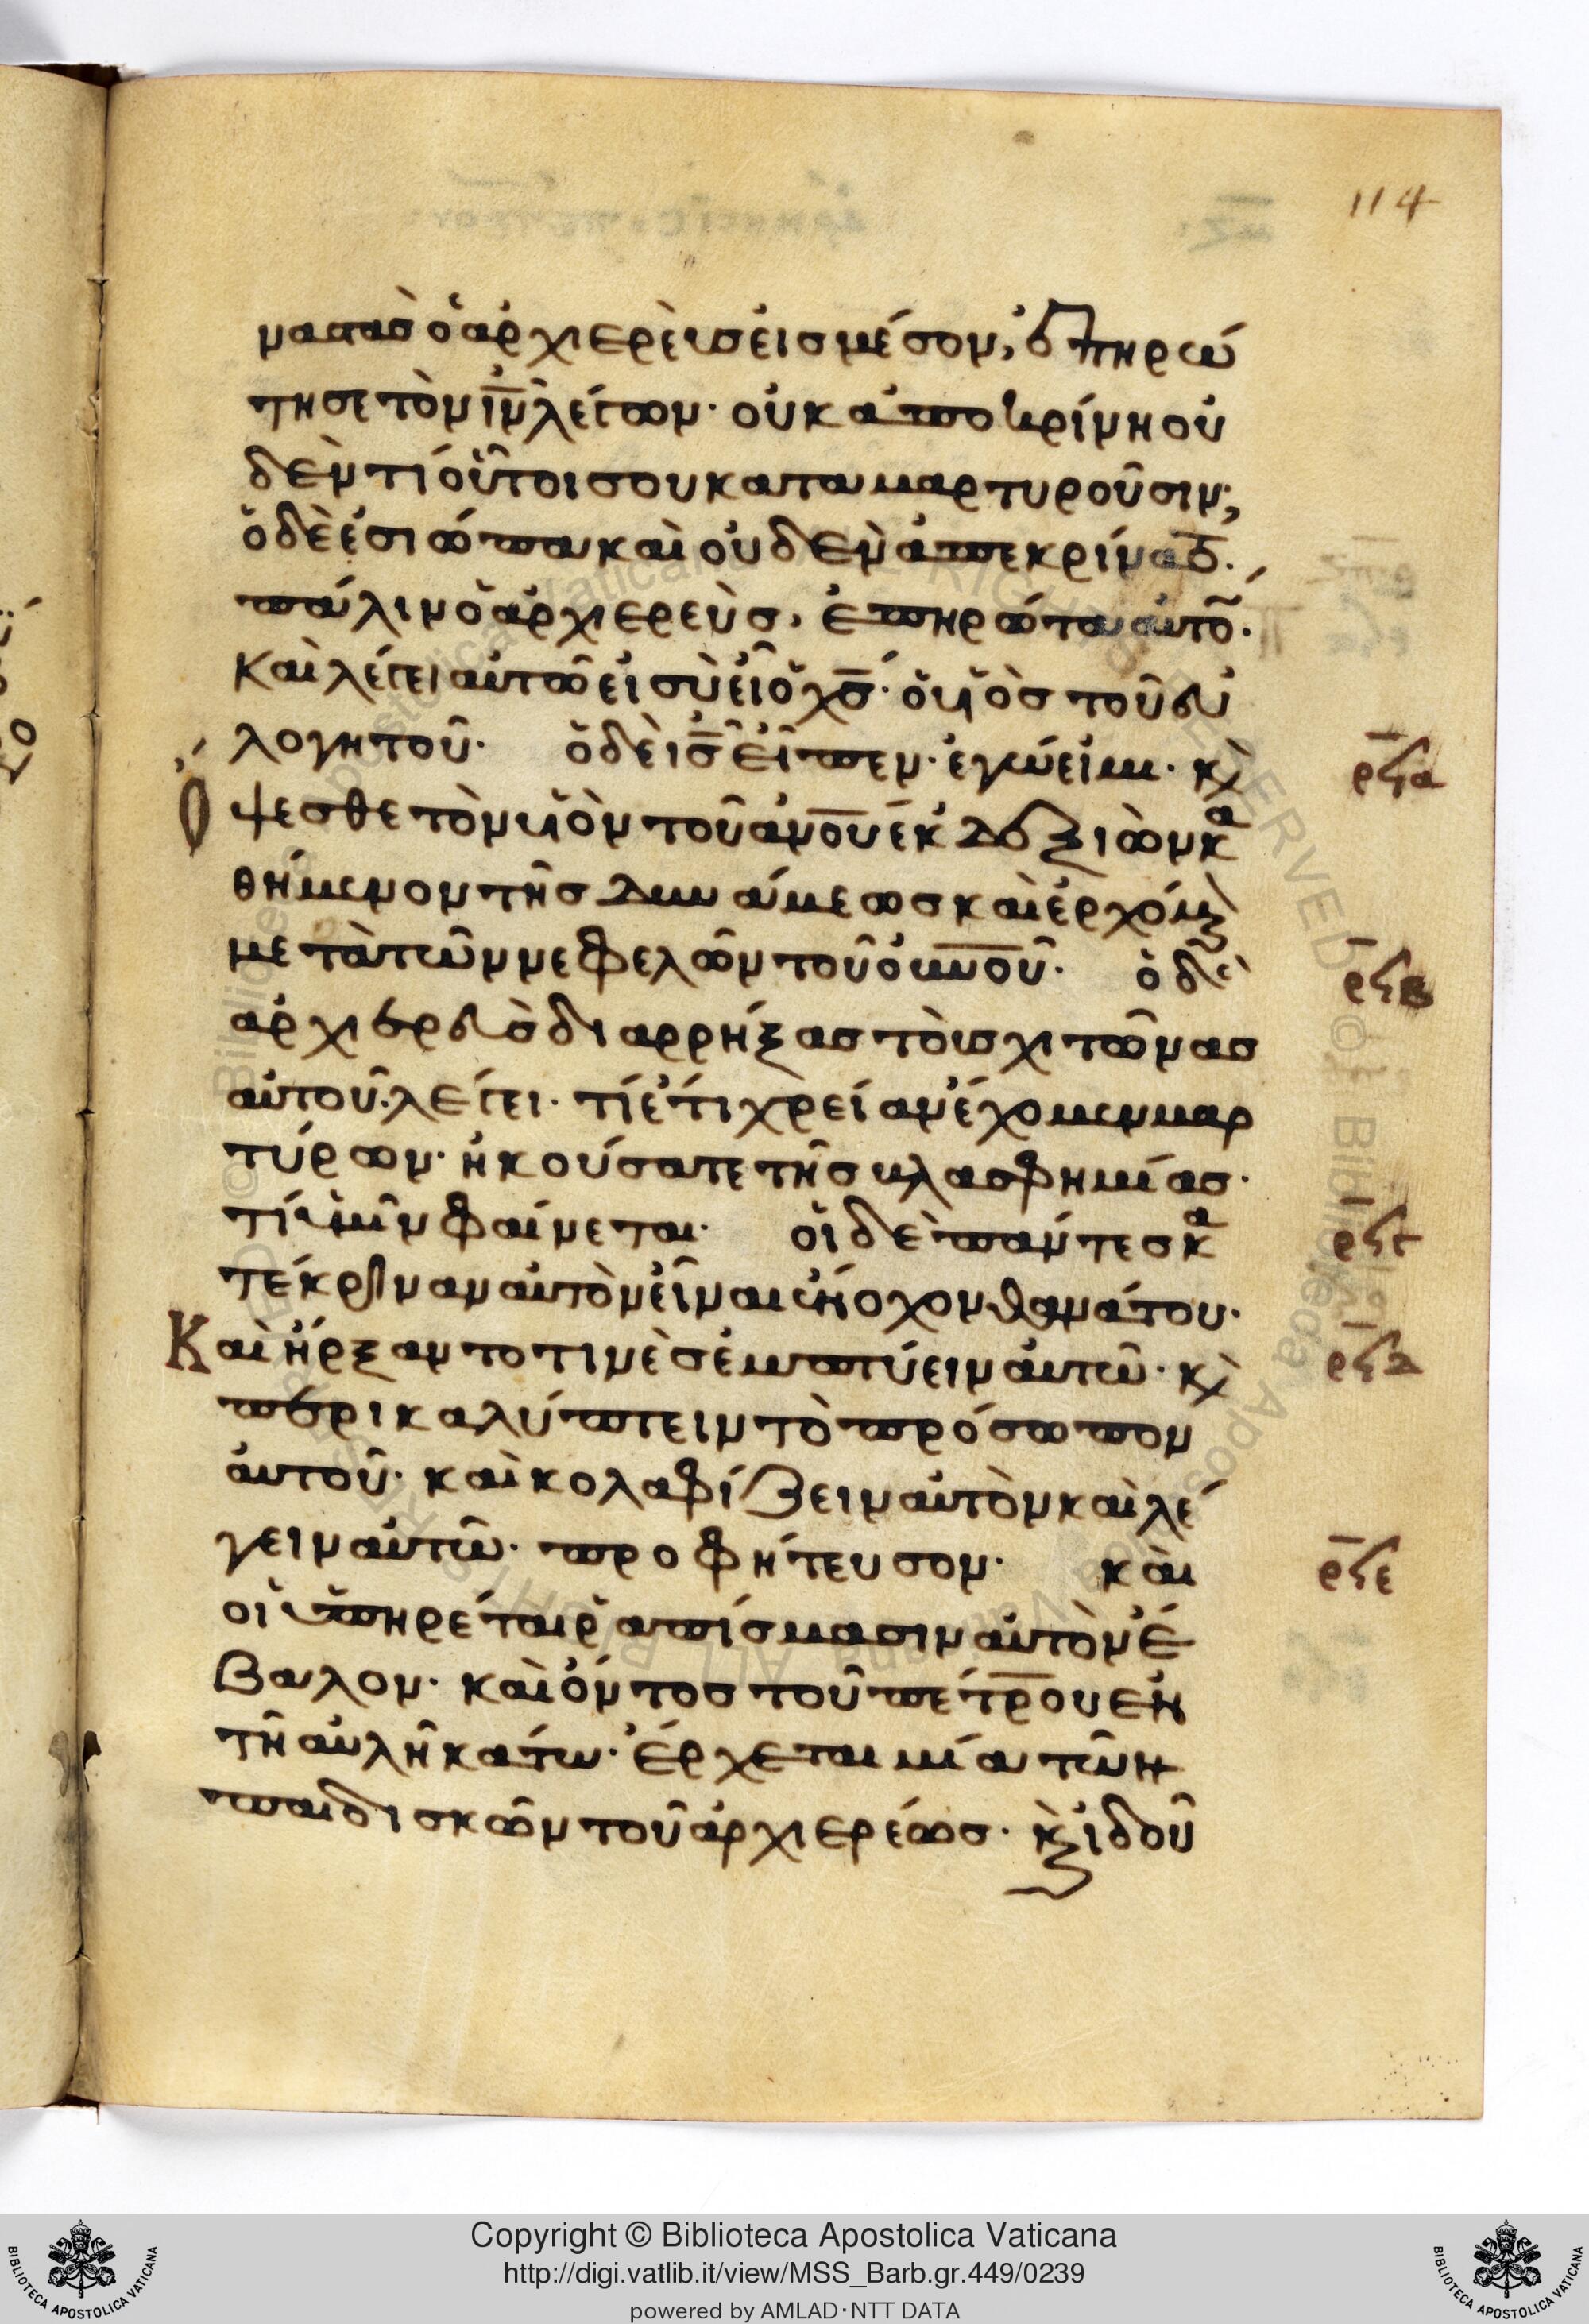 114
μαστας ὁ ἀρχιερεὺς εἰς μέσον, ἐπηρώ
τησε τὸν ι̅ν̅ λέγων· οὐκ ἀποκρίνη οὐ
δὲν τί οὗτοι σου καταμαρτυροῦσιν;
ὁ δὲ ἐσιώπα καὶ οὐδὲν ἀπεκρίνατο.
πάλιν ὁ ἀρχιερεὺς, ἐπηρώτα αὐτὸ̅.
Καὶ λέγει αὐτῶ εἰ σὺ εἶ ὁ χ̅ς̅· ὁ υἱὸς τοῦ εὐ
λογητοῦ· ὁ δὲ ι̅ς̅ εἶπεν· ἐγώ εἰμι· κὶ ρϟα
Ὄψεσθε τὸν υἱὸν τοῦ α̅ν̅ο̅υ̅ ἐκ δεξιῶν κα
θήμενον τῆς δυνάμεως καὶ ἐρχόμε
μετὰ τῶν νεφελῶν τοῦ ο̅υ̅ν̅ο̅υ̅· ὁ δὲ ρϟβ
ἀρχιερεὺς διαρρήξας τοὺς χιτῶνας
αὐτοῦ· λέγει· τί ἔτι χρείαν ἔχομεν μαρ
τύρων· ἠκούσατε τῆς βλασφημίας·
τί ὑμῖν φαίνεται· οἱ δὲ πάντες κα ρϟγ
τέκριναν αὐτὸν εἶναι ἔνοχον θανάτου·
Καὶ ἤρξαντο τινὲς ἐμπτύειν αὐτῶ· κὶ ρϟδ
περικαλύπτειν τὸ πρόσωπον
αὐτοῦ· καὶ κολαφίζειν αὐτὸν καὶ λέ
γειν αὐτῶ· προφήτευσον· καὶ ρϟε
οἱ ὑπηρέται ῥαπίσμασιν αὐτὸν ἔ
βαλον· καὶ ὄντος τοῦ πέτρου ἐν
τῆ αὐλῆ κάτω· ἔρχεται μία τῶν
παιδισκῶν τοῦ ἀρχιερέως· κὶ ἰδοῦ
Copyright © Biblioteca Apostolica Vaticana
http://digi.vatlib.it/view/MSS_Barb.gr.449/0239
powered by AMLAD·NTT DATA